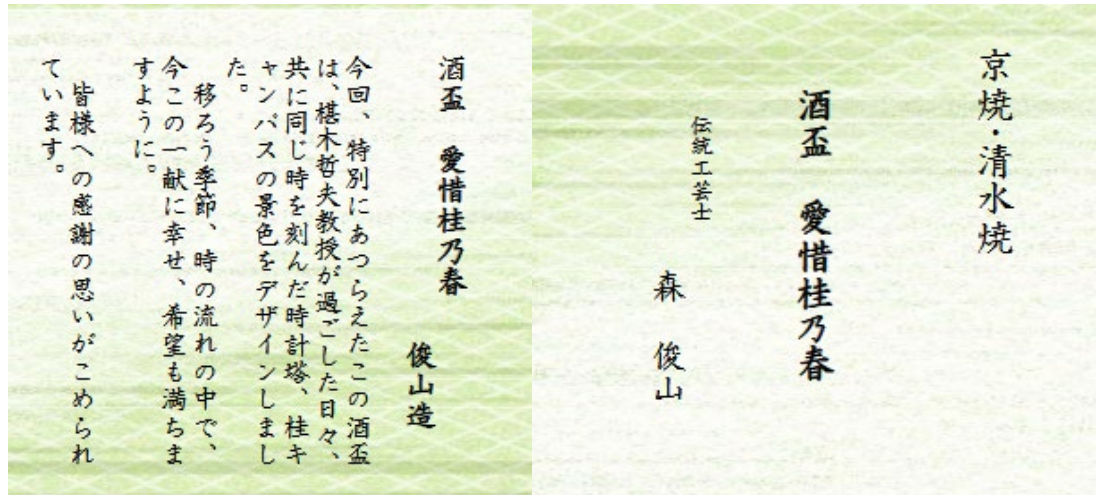 京焼・清水焼
酒盃　愛惜桂乃春
伝統工芸士
森　俊山
酒盃　愛惜桂乃春
俊山造
今回、特別にあつらえたこの酒盃
は、椹木哲夫教授が過ごした日々、
共に同じ時を刻んだ時計塔、桂キ
ャンパスの景色をデザインしまし
た。
　移ろう季節、時の流れの中で、
今この一献に幸せ、希望も満ちま
すように。
　皆様への感謝の思いがこめられ
ています。